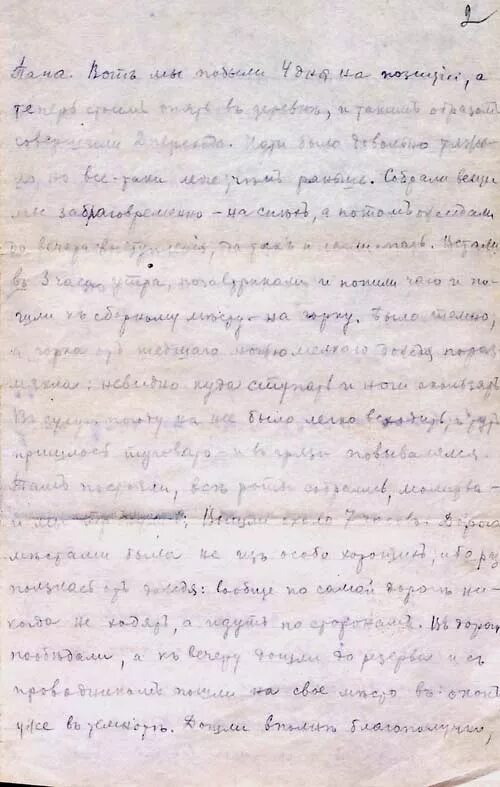 2
Тана. Вотъ мы побыли 4 дня на позиціи, а
теперь стоимъ опять въ деревнѣ, и такимъ образомъ
совершили Идти было довольно
но все-таки легче, чѣмъ раньше. Собрали вещи
мы заблаговременно - на а потомъ ожидали
до вечера и Встали
въ 3 часа утра, позавтракали и попили чаю и по-
шли къ сборному мѣсту - на горку. Было темно,
а горка отъ шедшаго ночью мелкаго дождя
невидно куда ступать и ноги скользятъ
Въ сухую погоду на нее было легко всходить, а тутъ
пришлось туговато - и въ грязи повывалялся.
Тамъ построили, всѣ роты собрались, молитва -
и Вышли около 7 часовъ. Дорога
мѣстами была не изъ особо хорошихъ, ибо раз
ползлась отъ дождя: вообще по самой дорогѣ ни-
когда не ходятъ, а идутъ по сторонамъ. Въ дорогѣ
пообѣдали, а къ вечеру дошли до резерва и съ
проводникомъ пошли на свое мѣсто въ окоп
уже въ темнотѣ. Дошли вполнѣ благополучно,